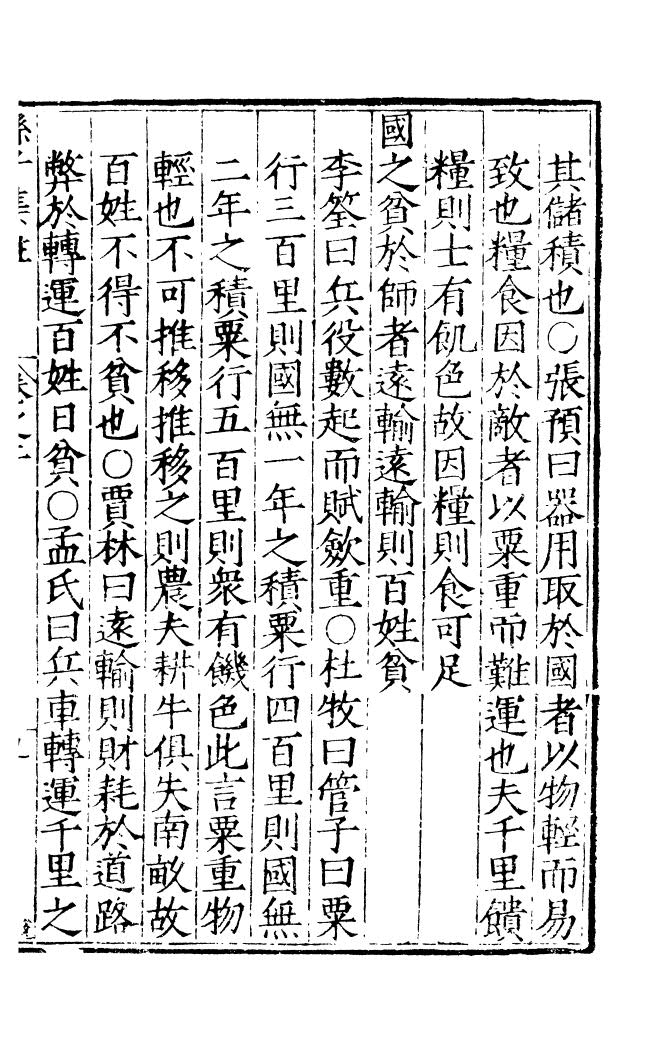 其儲積也○張預曰器用取於國者以物輕而易
致也糧食因於敵者以粟重而難運也夫千里饋
糧則士有飢色故因糧則食可足
國之貧於師者遠輸遠輸則百姓貧
李筌曰兵役數起而賦斂重○杜牧曰管子曰粟
行三百里則國無一年之積粟行四百里則國無
二年之積粟行五百里則衆有饑色此言粟重物
輕也不可推移推移之則農夫耕牛俱失南畝故
百姓不得不貧也○賈林曰遠輸則財耗於道路
弊於轉運百姓日貧○孟氏曰兵車轉運千里之